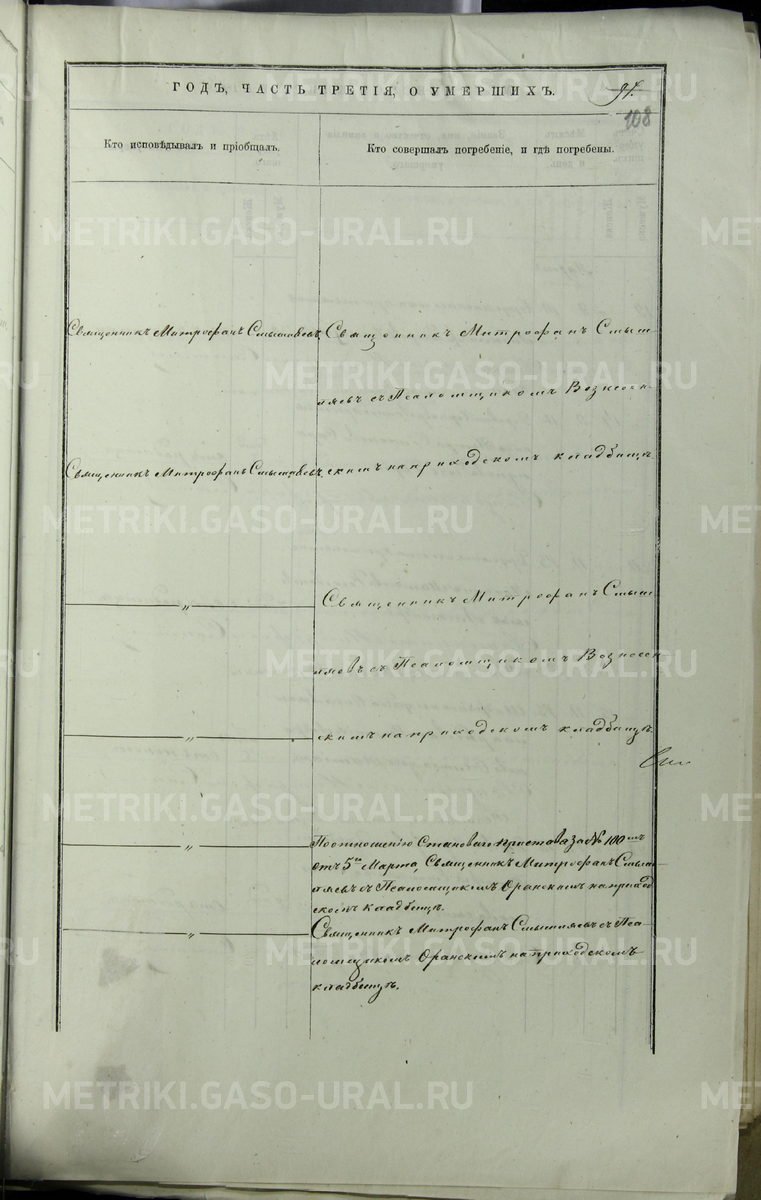 ГОДЪ, ЧАСТЬ ТРЕТІЯ, О УМЕРШИХЪ.
91.
108
Кто исповѣдывалъ и пріобщалъ.
Кто совершалъ погребеніе, и гдѣ погребены.
Священникъ Митрофанъ Смышляевъ.
Священникъ Митрофанъ Смыш
ляевъ съ Псаломщикомъ Вознесен-
Священникъ Митрофанъ Смышляевъ.
скимъ на приходскомъ кладбищѣ
„
Священникъ Митрофанъ Смыш
ляевъ съ Псаломщикомъ Вознесен
„
скимъ на приходскомъ кладбищѣ.
„
По отношенію Становаго Пристава за № 100мъ
отъ 5го Марта, Священникъ Митрофанъ Смыш
ляевъ съ Псаломщикомъ Оранскимъ на приход
скомъ кладбищѣ.
„
Священникъ Митрофанъ Смышляевъ съ Пса-
ломщикомъ Оранскимъ на приходскомъ
кладбищѣ.
METRIKI.GASO-URAL.RU